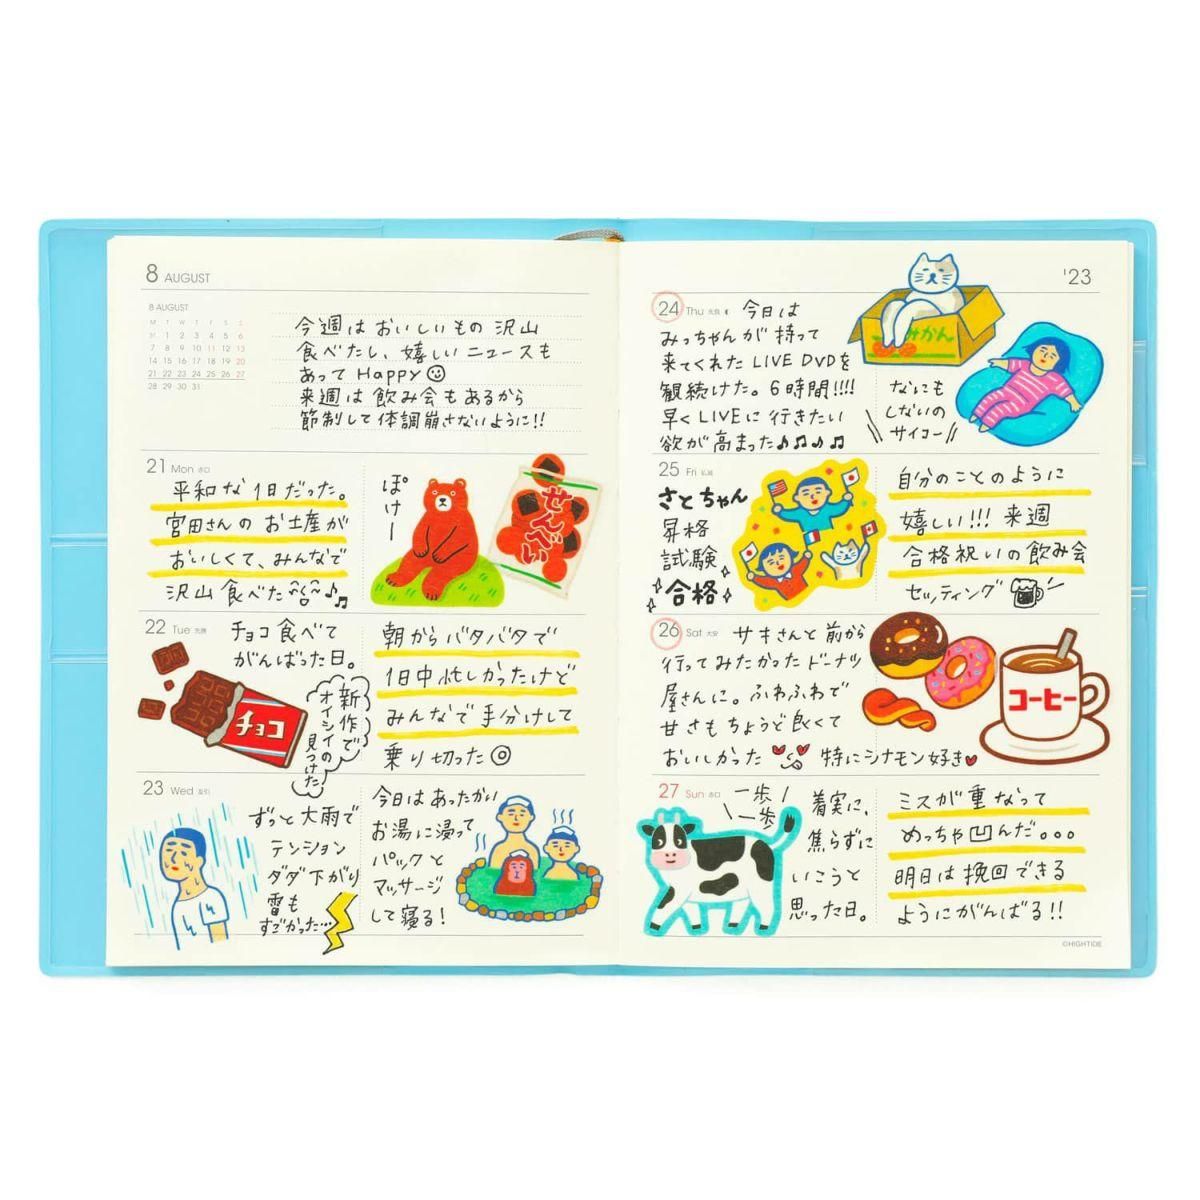 8 AUGUST
8 AUGUST
M T W T F S S
31 1 2 3 4 5 6
7 8 9 10 11 12 13
14 15 16 17 18 19 20
21 22 23 24 25 26 27
28 29 30 31
今週は おいしいもの 沢山
食べたし、嬉しいニュースも
あって HAPPY
来週は 飲み会もあるから
節制して体調崩さないように!!
21 Mon 赤口
平和な1日だった。
宮田さんの お土産が
おいしくて、みんなで
沢山 食べた♪♫
ぽけー
せんべい
22 Tue 先勝
チョコ食べて
がんばった日。
新作で
オイシイの
見つけた
チョコ
朝からバタバタで
1日中忙しかったけど
みんなで手分けして
乗り切った◎
23 Wed 友引
ずっと大雨で
テンション
ダダ下がり
雷も
すごかった…
今日はあったかい
お湯に浸って
パックと
マッサージ
して寝る!
'23
24 Thu 先負
今日は
みっちゃんが 持って
来てくれた LIVE DVDを
観続けた。6時間!!!!
早くLIVEに行きたい
欲が高まった♪♫♪♫
みかん
なにも
しないの
サイコー
25 Fri 仏滅
さとちゃん
昇格
試験
合格
自分のことのように
嬉しい!!! 来週
合格祝いの飲み会
セッティング
26 Sat 大安
サキさんと前から
行ってみたかったドーナツ
屋さんに。ふわふわで
甘さもちょうど良くて
おいしかった 特にシナモン好き
コーヒー
27 Sun 赤口
一歩
一歩
着実に、
焦らずに
いこうと
思った日。
ミスが重なって
めっちゃ凹んだ。。。
明日は挽回できる
ようにがんばる!!
©HIGHTIDE